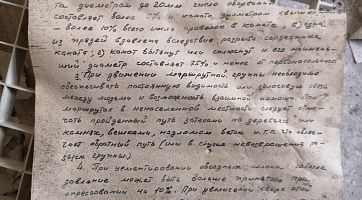 та диаметром до 20мм число оборванных
составляет более
– более 10% всего числа проволок в канате; б) одна
из прядей вдавлена вследствие разрыва сердечника
каната; в) канат вытянут или сплюснут и его наимень-
ший диаметр составляет 75% и менее от первоначального
3. При движении маршрутной группы необходимо
обеспечивать постоянную видимость или голосовую связь
между людьми и возможность взаимной помощи. При
маршрутах в ненаселенной местности следует отме-
чать пройденный путь затесами на деревьях или
камнях, вешками, надломом веток и т.п. что облег-
чает обратный путь (или в случае невозвращения
розыск группы)
4. При цементировании обсадных колонн рабочее
давление может быть больше принятого при
опрессовании на 10%. При увеличении сверх этой